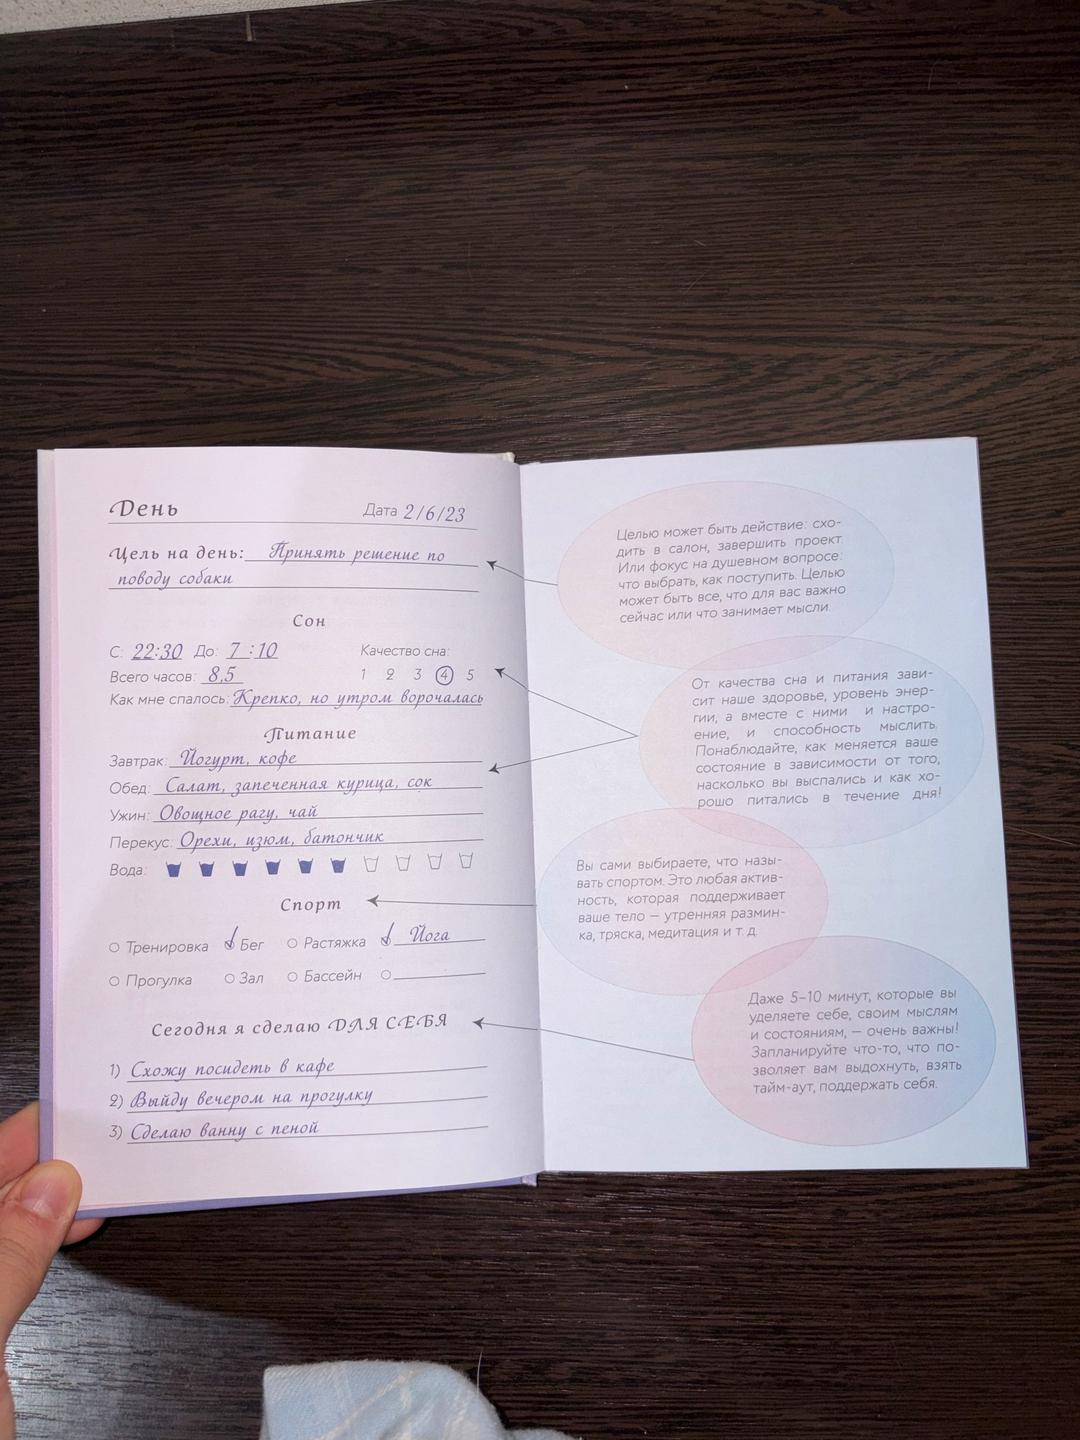 День
Дата 2/6/23
Цель на день: Принять решение по
поводу собаки
Сон
С: 22:30 До: 7:10
Качество сна:
Всего часов: 8,5
1 2 3 4 5
Как мне спалось: Крепко, но утром ворочалась
Питание
Завтрак: Йогурт, кофе
Обед: Салат, запеченная курица, сок
Ужин: Овощное рагу, чай
Перекус: Орехи, изюм, батончик
Вода:
Спорт
Тренировка Бег Растяжка Йога
Прогулка Зал Бассейн
Сегодня я сделаю ДЛЯ СЕБЯ
1) Схожу посидеть в кафе
2) Выйду вечером на прогулку
3) Сделаю ванну с пеной
Целью может быть действие: схо-
дить в салон, завершить проект.
Или фокус на душевном вопросе:
что выбрать, как поступить. Целью
может быть все, что для вас важно
сейчас или что занимает мысли.
От качества сна и питания зави-
сит наше здоровье, уровень энер-
гии, а вместе с ними и настро-
ение, и способность мыслить.
Понаблюдайте, как меняется ваше
состояние в зависимости от того,
насколько вы выспались и как хо-
рошо питались в течение дня!
Вы сами выбираете, что назы-
вать спортом. Это любая актив-
ность, которая поддерживает
ваше тело — утренняя размин-
ка, тряска, медитация и т. д.
Даже 5–10 минут, которые вы
уделяете себе, своим мыслям
и состояниям, — очень важны!
Запланируйте что-то, что по-
зволяет вам выдохнуть, взять
тайм-аут, поддержать себя.